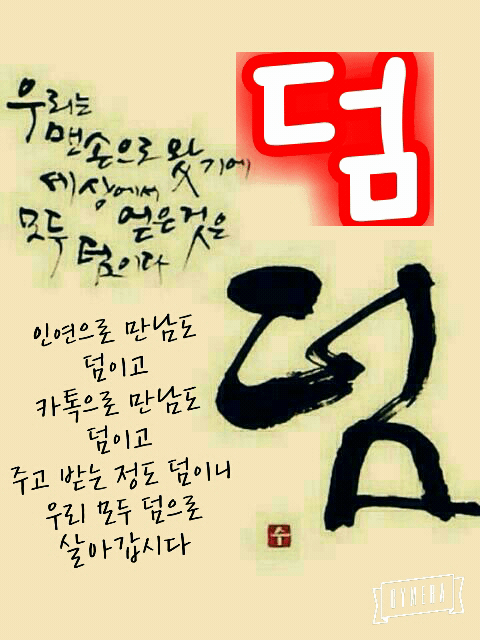 덤
우리는
맨손으로 왔기에
세상에서
얻은것은
모두
덤이다
덤
인연으로 만남도
덤이고
카톡으로 만남도
덤이고
주고 받는 정도 덤이니
우리 모두 덤으로
살아갑시다
수
CYMERA